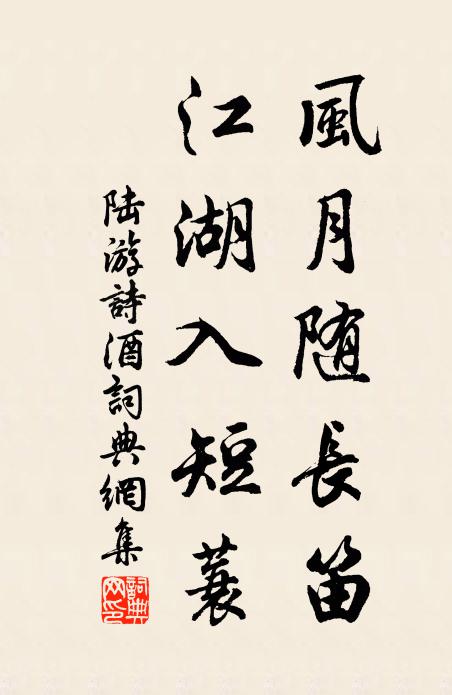 風月随長笛
江湖入短蓑
陆游詩酒詞典網集
詞典网印